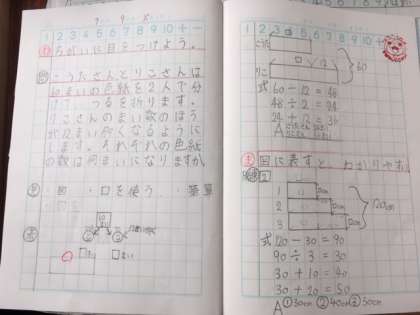 7 9 8
1 2 3 4 5 6 7 8 9 10 + −
め ちがいに目をつけよう。
問 こうたさんとりこさんは
60まいの色紙を2人で分
けて、つるを折ります。
りこさんのまい数のほう
が12まい多くなるように
します。それぞれの色紙
の数は何まいになりますか
・図 ・□を使う ・筆算
1 2 3 4 5 6 7 8 9 10 + −
こうた
りこ □ 12
60
式 60 − 12 = 48
48 ÷ 2 = 24
24 + 12 = 36
図に表すと わかりやすい
2
1
2
3
10cm
120cm
式 120 − 30 = 90
90 ÷ 3 = 30
30 + 10 = 40
30 + 20 = 50
A ①30cm ②40cm ③50cm